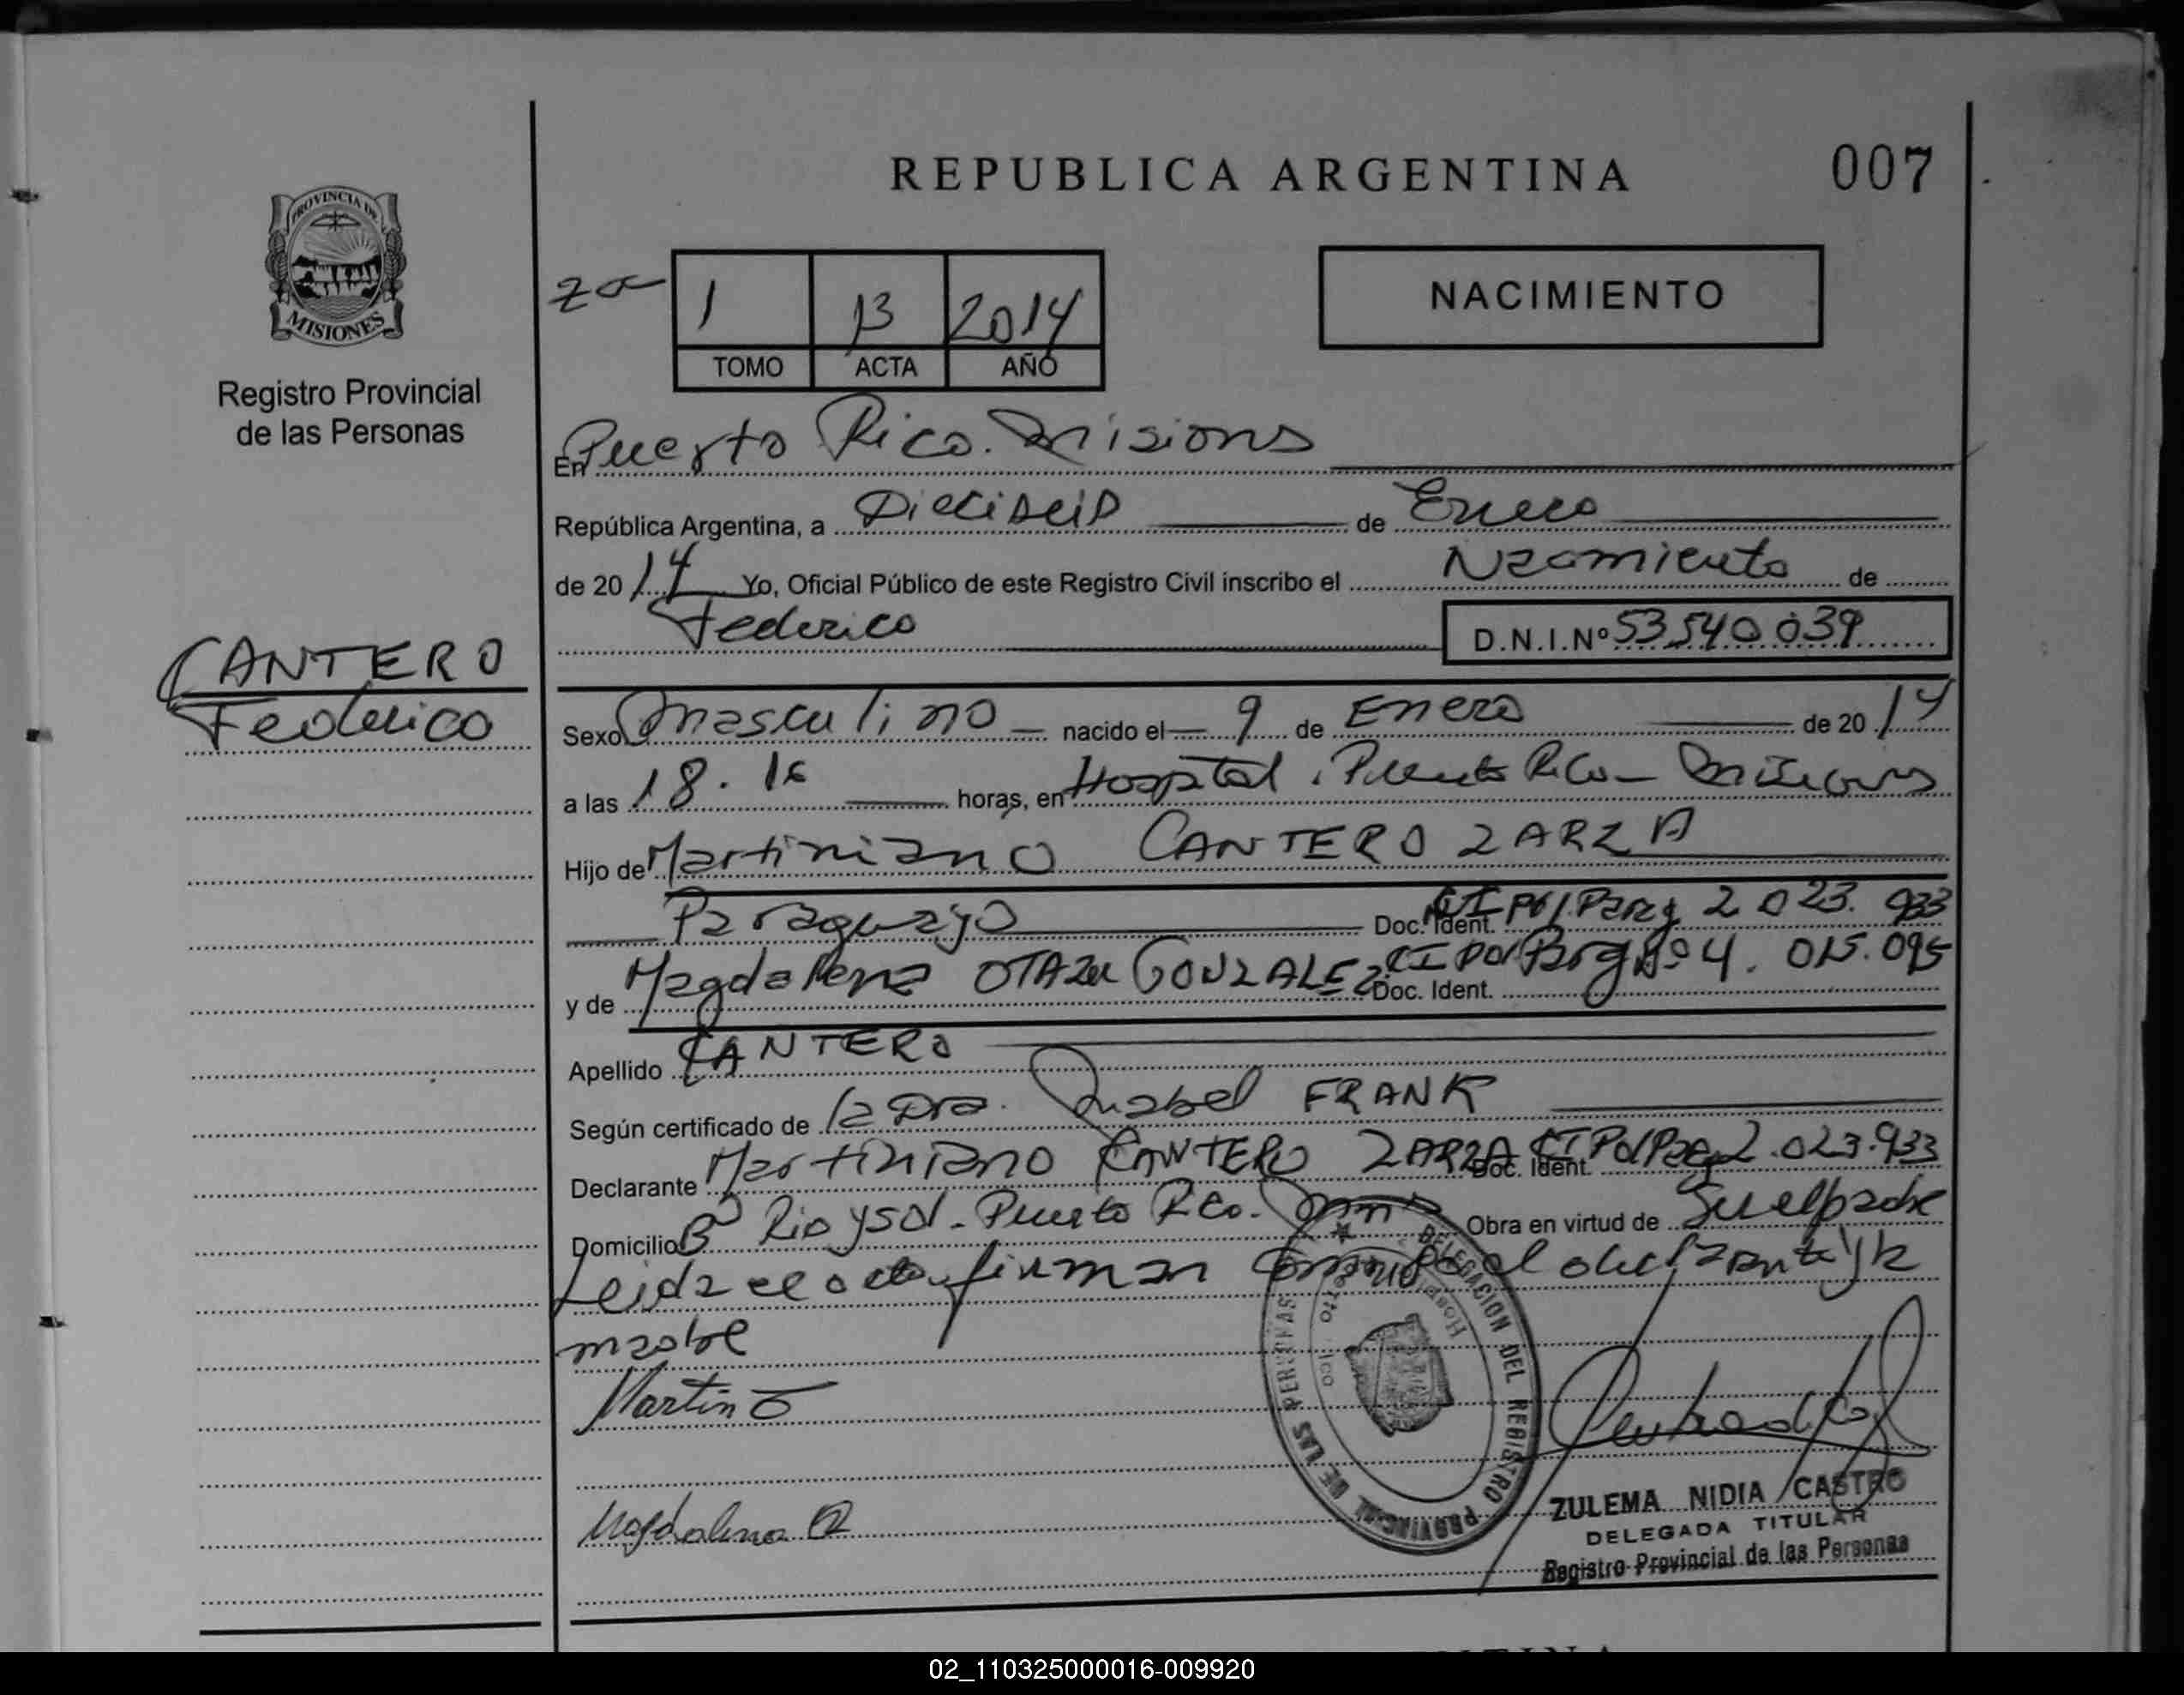 REPUBLICA ARGENTINA
007
PROVINCIA DE
MISIONES
Registro Provincial
de las Personas
1 13 2014
TOMO ACTA AÑO
NACIMIENTO
En Puerto Rico. Misions
República Argentina, a Dieciseis de Enero
de 2014 Yo, Oficial Público de este Registro Civil inscribo el Nacimiento de
Federico
D.N.I.Nº 53 540 039
CANTERO
Federico
Sexo Masculino nacido el 9 de Enero de 2014
a las 18.16 horas, en Hospital. Puerto Rico - Misiones
Hijo de Martiniano CANTERO ZARZA
Paraguayo Doc. Ident. CI Pol Parag 2 023. 933
y de Magdalena OTAZU GONZALEZ Doc. Ident. CI Pol Parg Nº 4. 015.095
Apellido CANTERO
Según certificado de la Dra. Mabel FRANK
Declarante Martiniano CANTERO ZARZA Doc. Ident. CI Pol Parg 2.023.933
Domicilio Bº Rio y Sol - Puerto Rco. Mnes Obra en virtud de Ser el padre
Leida el acta firman conmigo el declarante y la
madre
Martin
Magdalena O
DELEGACION DEL REGISTRO PROVINCIAL DE LAS PERSONAS
ZULEMA NIDIA CASTRO
DELEGADA TITULAR
Registro Provincial de las Personas
02_110325000016-009920